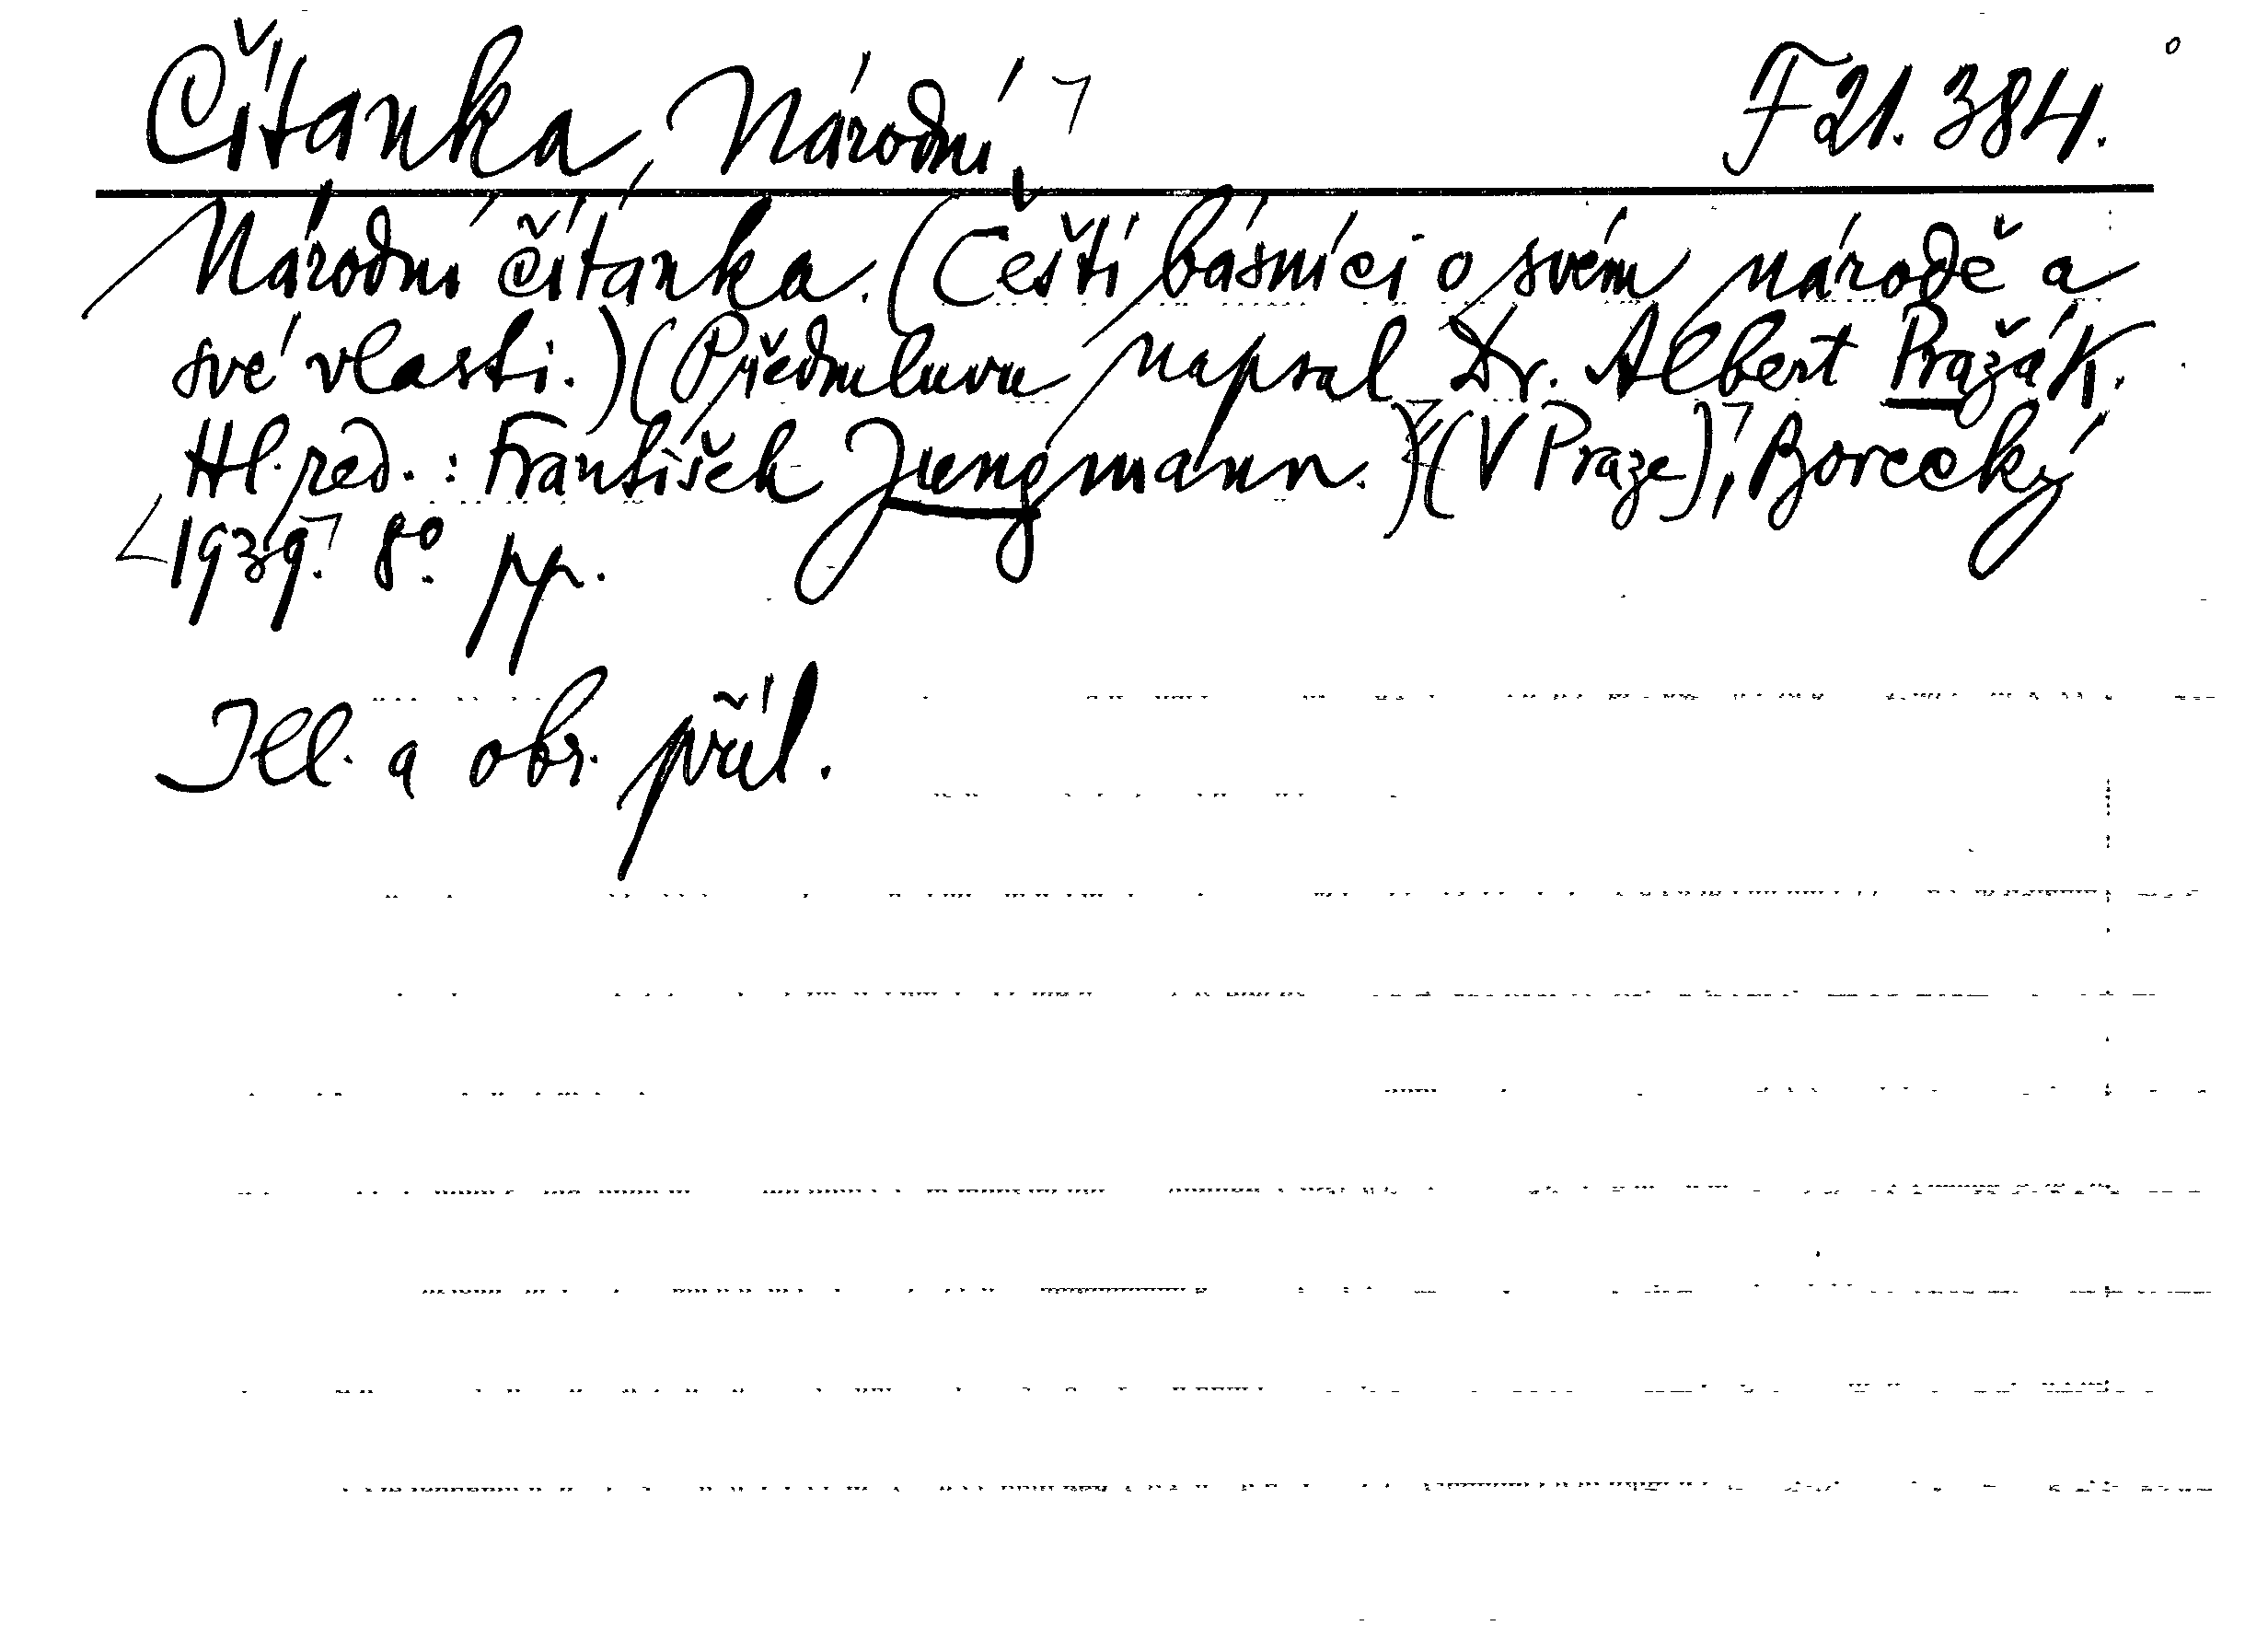 Čítanka, Národní. F 21.384.
Národní čítánka. (Čeští básníci o svém národě a
své vlasti.) (Předmluvu napsal Dr. Albert Pražák.
Hl. red.: František Jungmann.) (V Praze), Borecký
1939. 8°. pp.
Ill. a obr. příl.